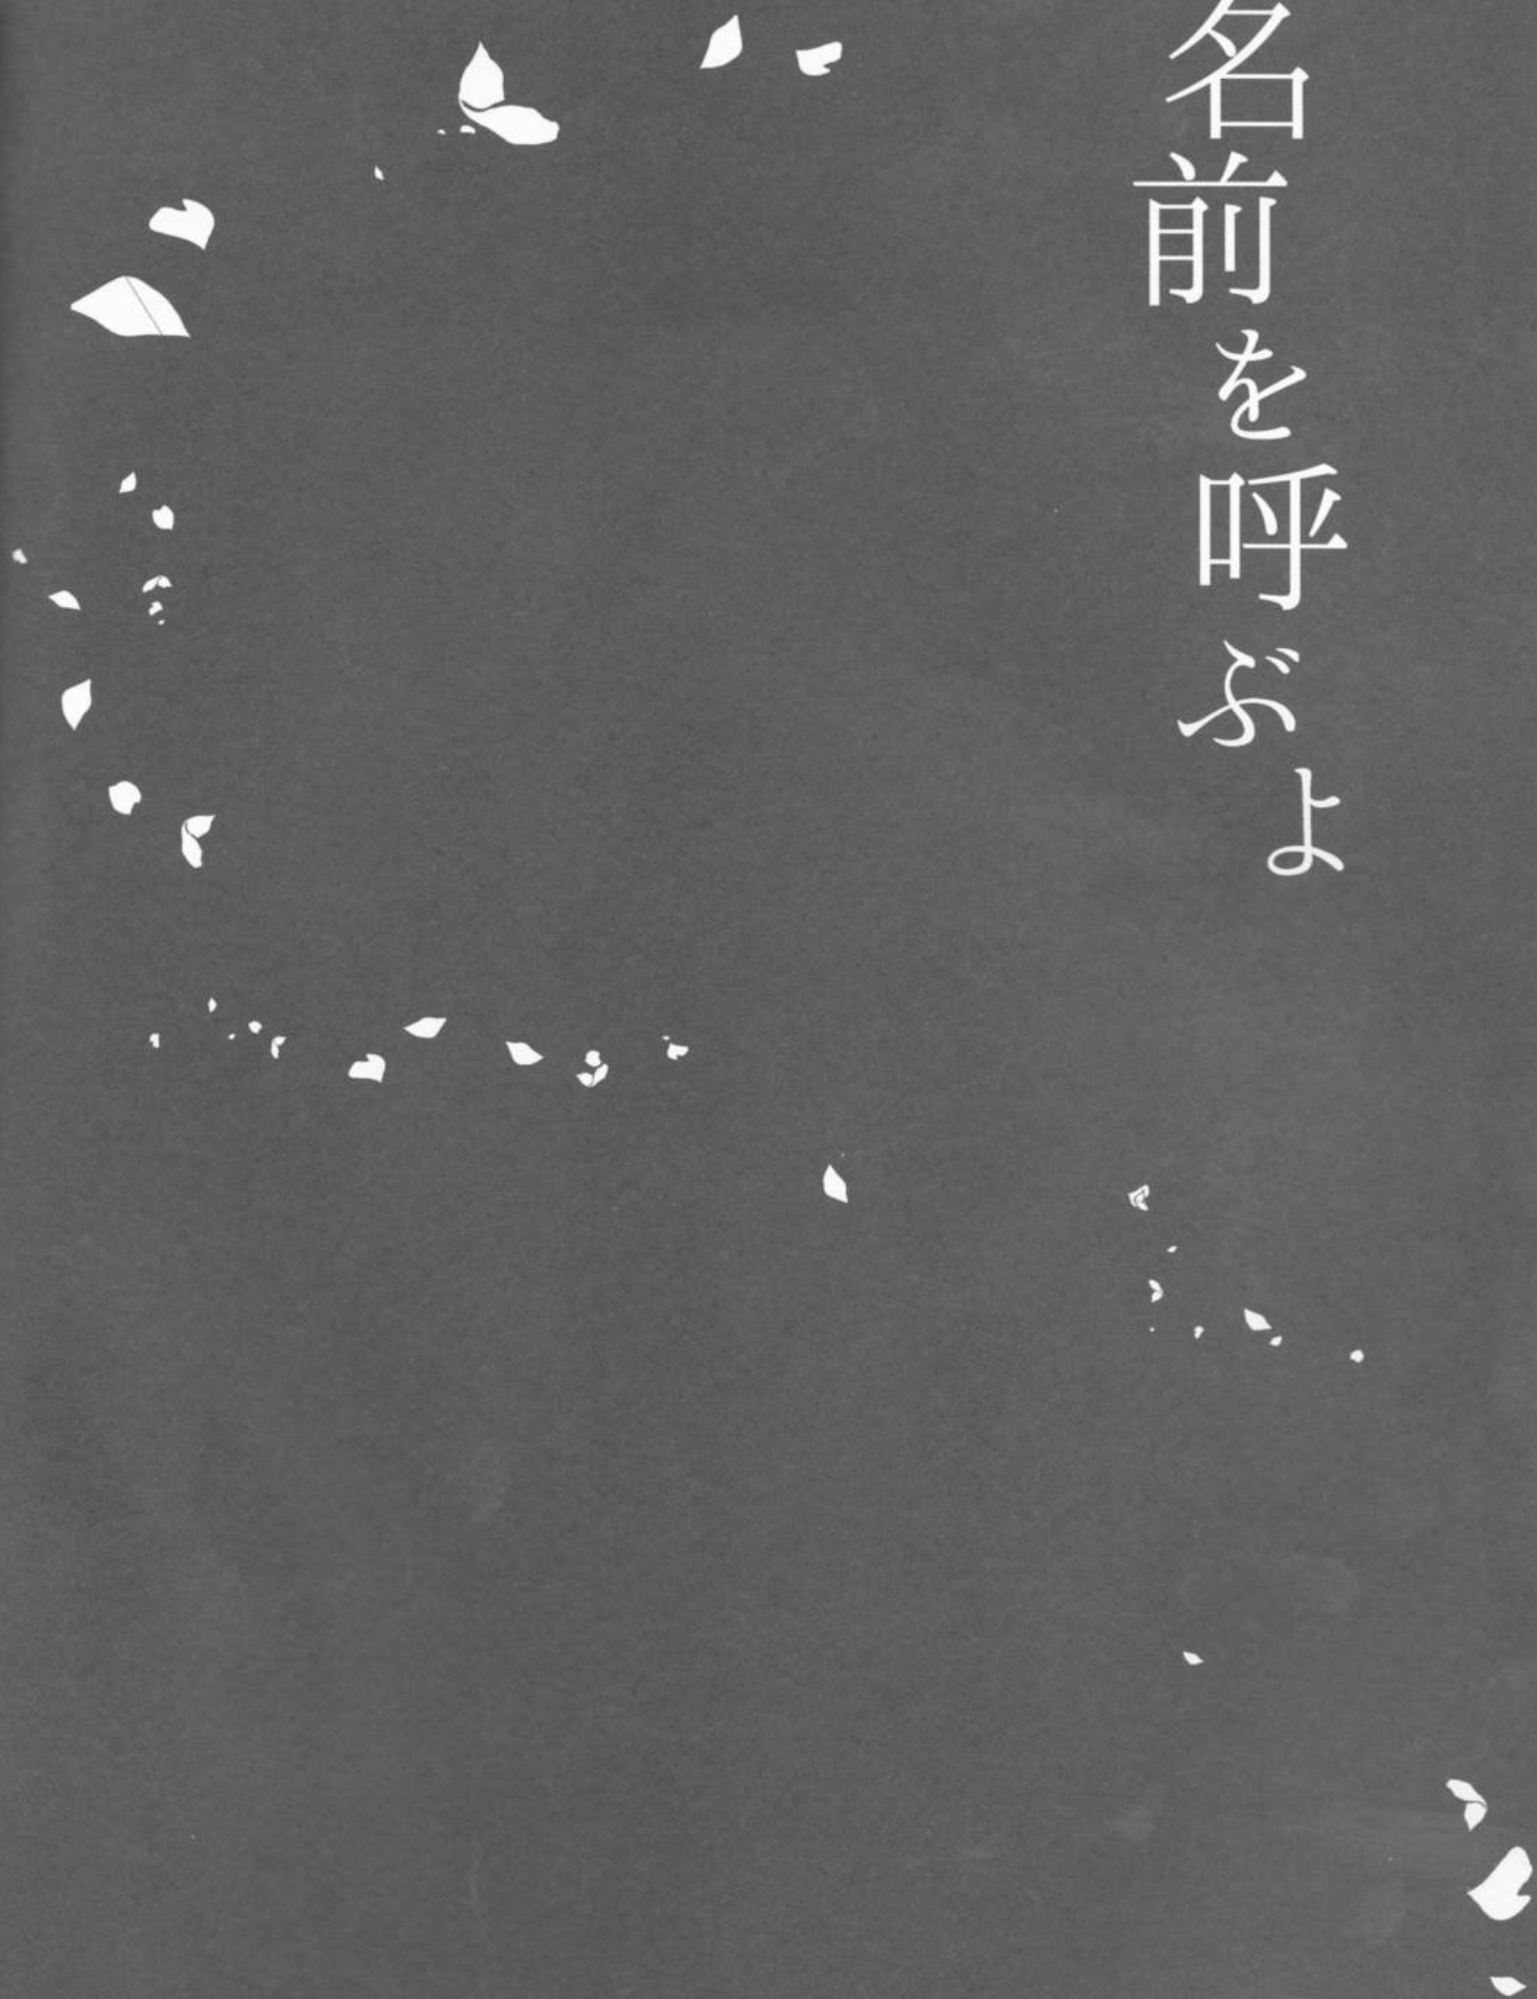 名前を呼ぶよ